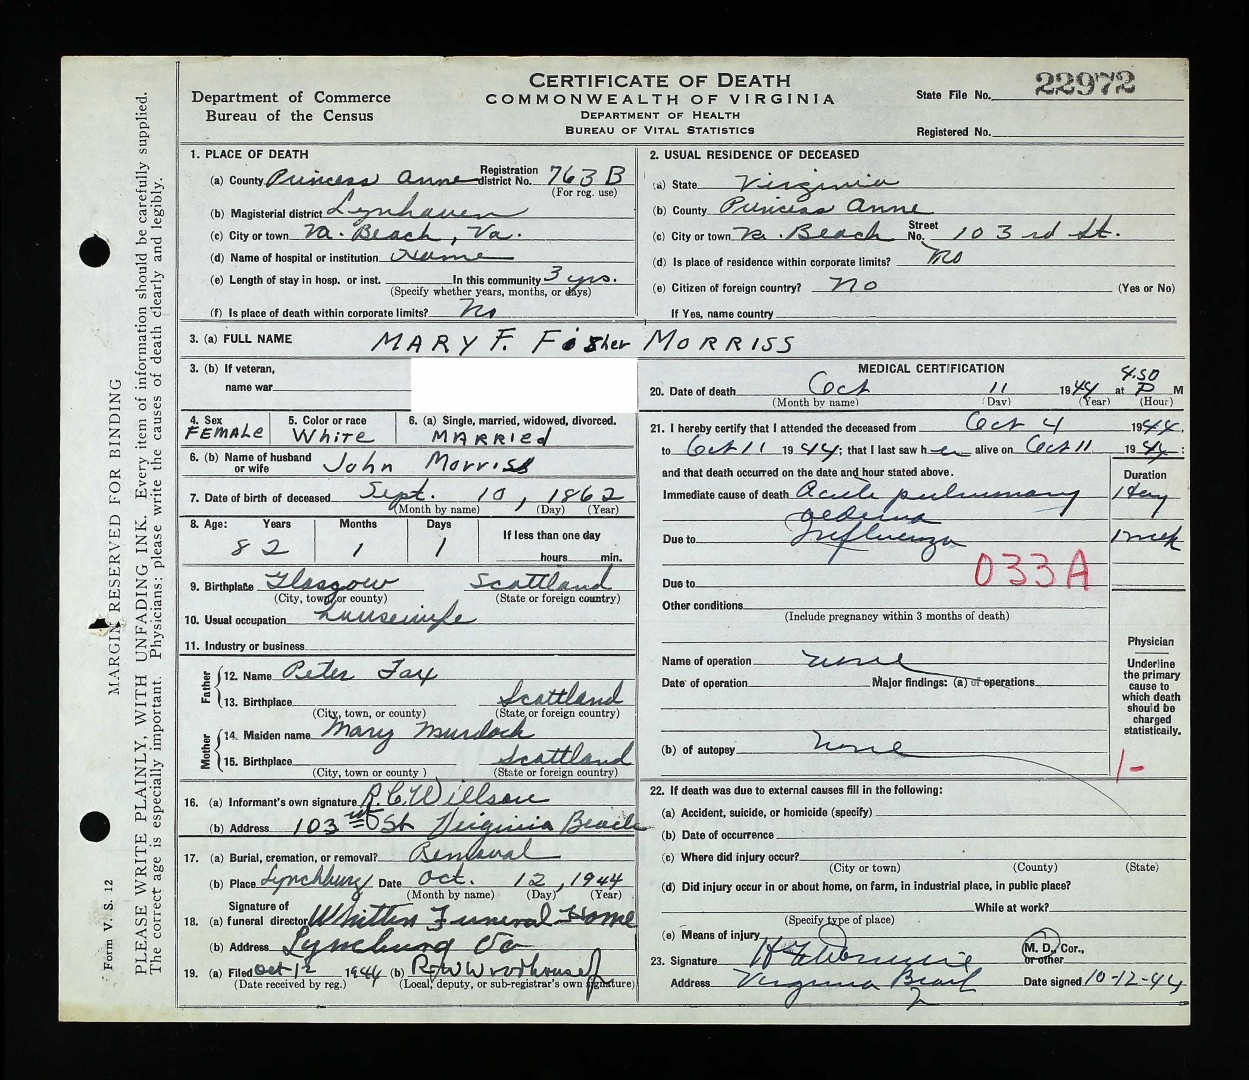 CERTIFICATE OF DEATH
COMMONWEALTH OF VIRGINIA
DEPARTMENT OF HEALTH
BUREAU OF VITAL STATISTICS
Department of Commerce
Bureau of the Census
State File No. 22972
Registered No.
MARGIN RESERVED FOR BINDING
PLEASE WRITE PLAINLY, WITH UNFADING INK. Every item of information should be carefully supplied.
The correct age is especially important. Physicians: please write the causes of death clearly and legibly.
Form V. S. 12
1. PLACE OF DEATH
(a) County Princess Anne Registration district No. 763 B
(For reg. use)
(b) Magisterial district Lynhaven
(c) City or town Va. Beach, Va.
(d) Name of hospital or institution Home
(e) Length of stay in hosp. or inst. In this community 3 yrs.
(Specify whether years, months, or days)
(f) Is place of death within corporate limits? No
2. USUAL RESIDENCE OF DECEASED
(a) State Virginia
(b) County Princess Anne
(c) City or town Va. Beach Street No. 103rd St.
(d) Is place of residence within corporate limits? No
(e) Citizen of foreign country? No (Yes or No)
If Yes, name country
3. (a) FULL NAME MARY F. Fisher MORRISS
3. (b) If veteran,
name war
4. Sex FEMALE
5. Color or race White
6. (a) Single, married, widowed, divorced. MARRIED
6. (b) Name of husband or wife John Morriss
7. Date of birth of deceased Sept. 10, 1862
(Month by name) (Day) (Year)
8. Age: Years Months Days If less than one day
82 1 1 hours min.
9. Birthplace Glasgow Scottland
(City, town, or county) (State or foreign country)
10. Usual occupation housewife
11. Industry or business
Father
12. Name Peter Fax
13. Birthplace Scottland
(City, town, or county) (State or foreign country)
Mother
14. Maiden name Mary Murdock
15. Birthplace Scottland
(City, town or county) (State or foreign country)
16. (a) Informant's own signature R. C. Willson
(b) Address 103rd St Virginia Beach
17. (a) Burial, cremation, or removal? Removal
(b) Place Lynchburg Date Oct. 12, 1944
(Month by name) (Day) (Year)
Signature of
18. (a) funeral director Whitten Funeral Home
(b) Address Lynchburg Va
19. (a) Filed Oct 12 1944 (b) R W Woodhouse
(Date received by reg.) (Local, deputy, or sub-registrar's own signature)
MEDICAL CERTIFICATION
20. Date of death Oct 11 1944 at 4.50 P M
(Month by name) (Day) (Year) (Hour)
21. I hereby certify that I attended the deceased from Oct 4 1944,
to Oct 11 1944; that I last saw her alive on Oct 11 1944;
and that death occurred on the date and hour stated above.
Duration
Immediate cause of death Acute pulmonary 1 day
oedema
Due to Influenza 1 week
033A
Due to
Other conditions
(Include pregnancy within 3 months of death)
Name of operation none
Date of operation Major findings: (a) of operations
(b) of autopsy none
Physician
Underline the primary cause to which death should be charged statistically.
1-
22. If death was due to external causes fill in the following:
(a) Accident, suicide, or homicide (specify)
(b) Date of occurrence
(c) Where did injury occur?
(City or town) (County) (State)
(d) Did injury occur in or about home, on farm, in industrial place, in public place?
While at work?
(Specify type of place)
(e) Means of injury
23. Signature M. D., Cor., or other
Address Virginia Beach Date signed 10-12-44